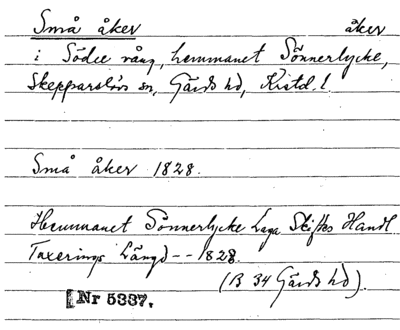 Små åker åker
i Södre vång, hemmanet Sönnerlycke,
Skepparslövs sn, Gärds hd, Kristd. l.
Små åker 1828.
Hemmanet Sönnerlycke Laga Skiftes Handl.
Taxerings Längd -- 1828.
(B 34 Gärds hd).
Nr 5337.